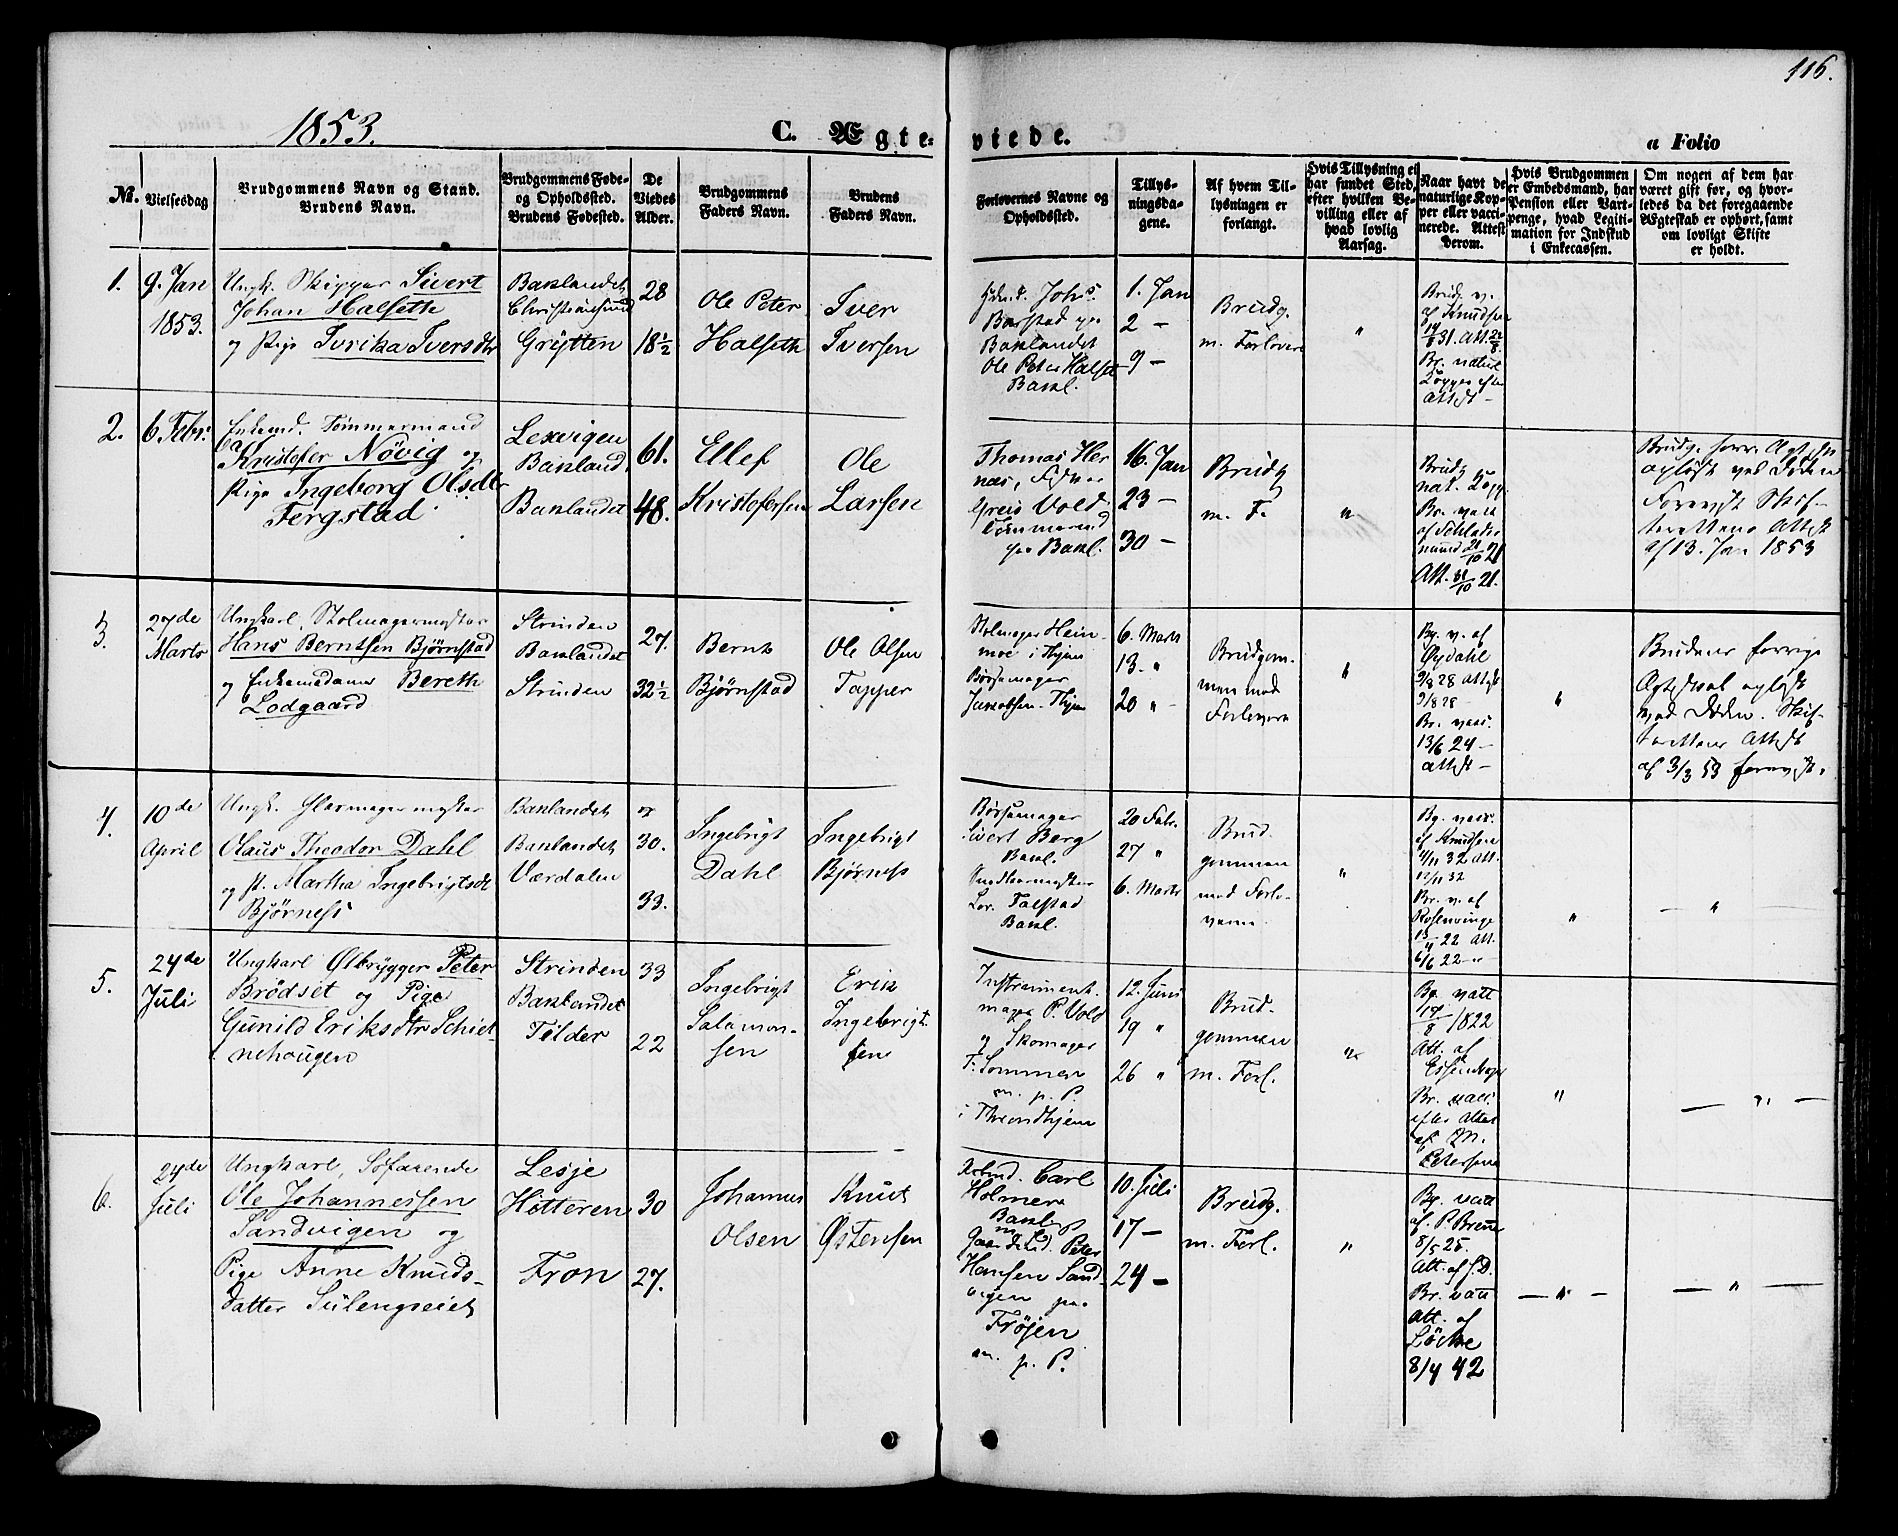 116.
1853.
C. Ægte-
viede.
a Folio
No.
Vielsesdag
Brudgommens Navn og Stand.
Brudens Navn.
Brudgommens Føde-
og Opholdssted.
Brudens Fødested.
De
Viedes
Alder.
Brudgommens
Faders Navn.
Brudens
Faders Navn.
Forlovernes Navne og
Opholdssted.
Tillys-
ningsda-
gene.
Af hvem Til-
lysningen er
forlangt.
Hvis Tillysning ei
har fundet Sted,
efter hvilken Be-
villing eller af
hvad lovlig
Aarsag.
Naar havt de
naturlige Kop-
per eller vacci-
nerede. Attest
derom.
Hvis Brudgommen
er Embedsmand, har
Pension eller Vart-
penge, hvad Legiti-
mation for Indskud
i Enkecassen.
Om nogen af dem har
været gift før, og hvor-
ledes da det foregaaende
Ægteskab er ophørt, samt
om lovligt Skifte
er holdt.
1.
9. Jan
1853.
Ungk. Skipper Sivert
Johan Halseth
og Pige Iverika Iversdtr
Baklandet
Christiansund
Grytten
28
18½
Ole Peter
Halseth
Iver
Iversen
Johs.
Barstad
Baklandet
Ole Peter Halseth
Bakl.
1. Jan
2 -
9 -
Brudg.
m. Forlovere
"
Brudg. v.
af Knudsen
19/8 31. Att. 22/8.
Br. natul
Kopper efter
Attest -
2.
6 Febr.
Enkemd. Tømmermand
Kristofer Nøvig og
Pige Ingeborg Olsdtr
Fergstad
Lexvigen
Bakland.
Baklandet
61.
48.
Ellef
Kristofersen
Ole
Larsen
Thomas Her
nes,
Greis Vold
Tømmermd
paa Bakl.
16. Jan
23 -
30 -
Brudg
m. F.
"
Brudg
nat. Kopp.
Br. vacc
af Schlados
mund 21/10 21
Att. 31/10 21.
Brudg. forr. Egtesk
opløst ved Døden
Forevist Skif-
terettens Attest
af 13. Jan 1853
3.
27de
Marts
Ungkarl, Stolmagermester
Hans Berntsen Bjørnstad
og Enkemadame Bereth
Lodgaard
Strinden
Baklandet
Strinden
27.
32½
Bernt
Bjørnstad
Ole Olsen
Tapper
Stolmager Hein-
moe i Thjem
Børsemager
Jacobsen. Thjem
6. Marts
13. "
20 "
Brudgom-
men med
Forlovere
"
Bg. v. af
Øydahl
9/8 28 Attest
9/8 28
Br. vacc.
13/6 24 -
Attest -
"
Brudens forrige
Egteskab opløst
ved Døden. Skif-
terettens Attest
af 3/3 53 forevist.
4.
10de
April
Ungk. Glarmagermester
Olaus Theodor Dahl
og P. Martha Ingebrigtsdt
Bjørness
Baklandet
Baklandet
Værdalen
30.
33.
Ingebrigt
Dahl
Ingebrigt
Bjørness
Børsemager
Sivert Berg
Bakl.
Snedkermester
Lor. Falstad
Bakl.
20 Febr.
27 "
6. Marts
Brud-
gommen
med Forlo-
verne.
"
Bg. vacc.
af Knudsen
4/11 32 Att.
12/11 32
Br. v. af
Rosenvinge
15/4 22 Att.
6/6 22 -
"
- " -
5.
24de
Juli
Ungkarl Ølbrygger Peter
Brødset og Pige
Gunild Eriksdtr Schiet-
nehaugen
Strinden
Baklandet
Tilder
33
22
Ingebrigt
Salamon-
sen
Erik
Ingebrigt-
sen
Instrument-
mager P. Vold
og Skomager
F. Sommer
m. p. P.
i Throndhjem
12. Juni
19 "
26 "
Brud-
gommen
m. Forl.
"
Bg. vacc
17/8 1822
Att. af
Essendrop
Br. vacc.
efter Attest
af M.
Petersen
"
- " -
6.
24de
Juli
Ungkarl, Søfarende
Ole Johannessen
Sandvigen og
Pige Anne Knuds-
datter Sulengseiet
Lesje
Hitteren
Fron
30
27.
Johannes
Olsen
Knut
Østensen
Carl
Holmer
Bakl.
Gaardmd. Peter
Hansen Sand-
vigen paa
Frøjen
m. p. P.
10. Juli
17 -
24 -
Brudg.
m. Forl.
"
Bg. vacc
af P. Brenn
8/5 25.
Att. af S.D.
Br. vacc
Att. af
Løcke
8/4 42
- " -
- " -